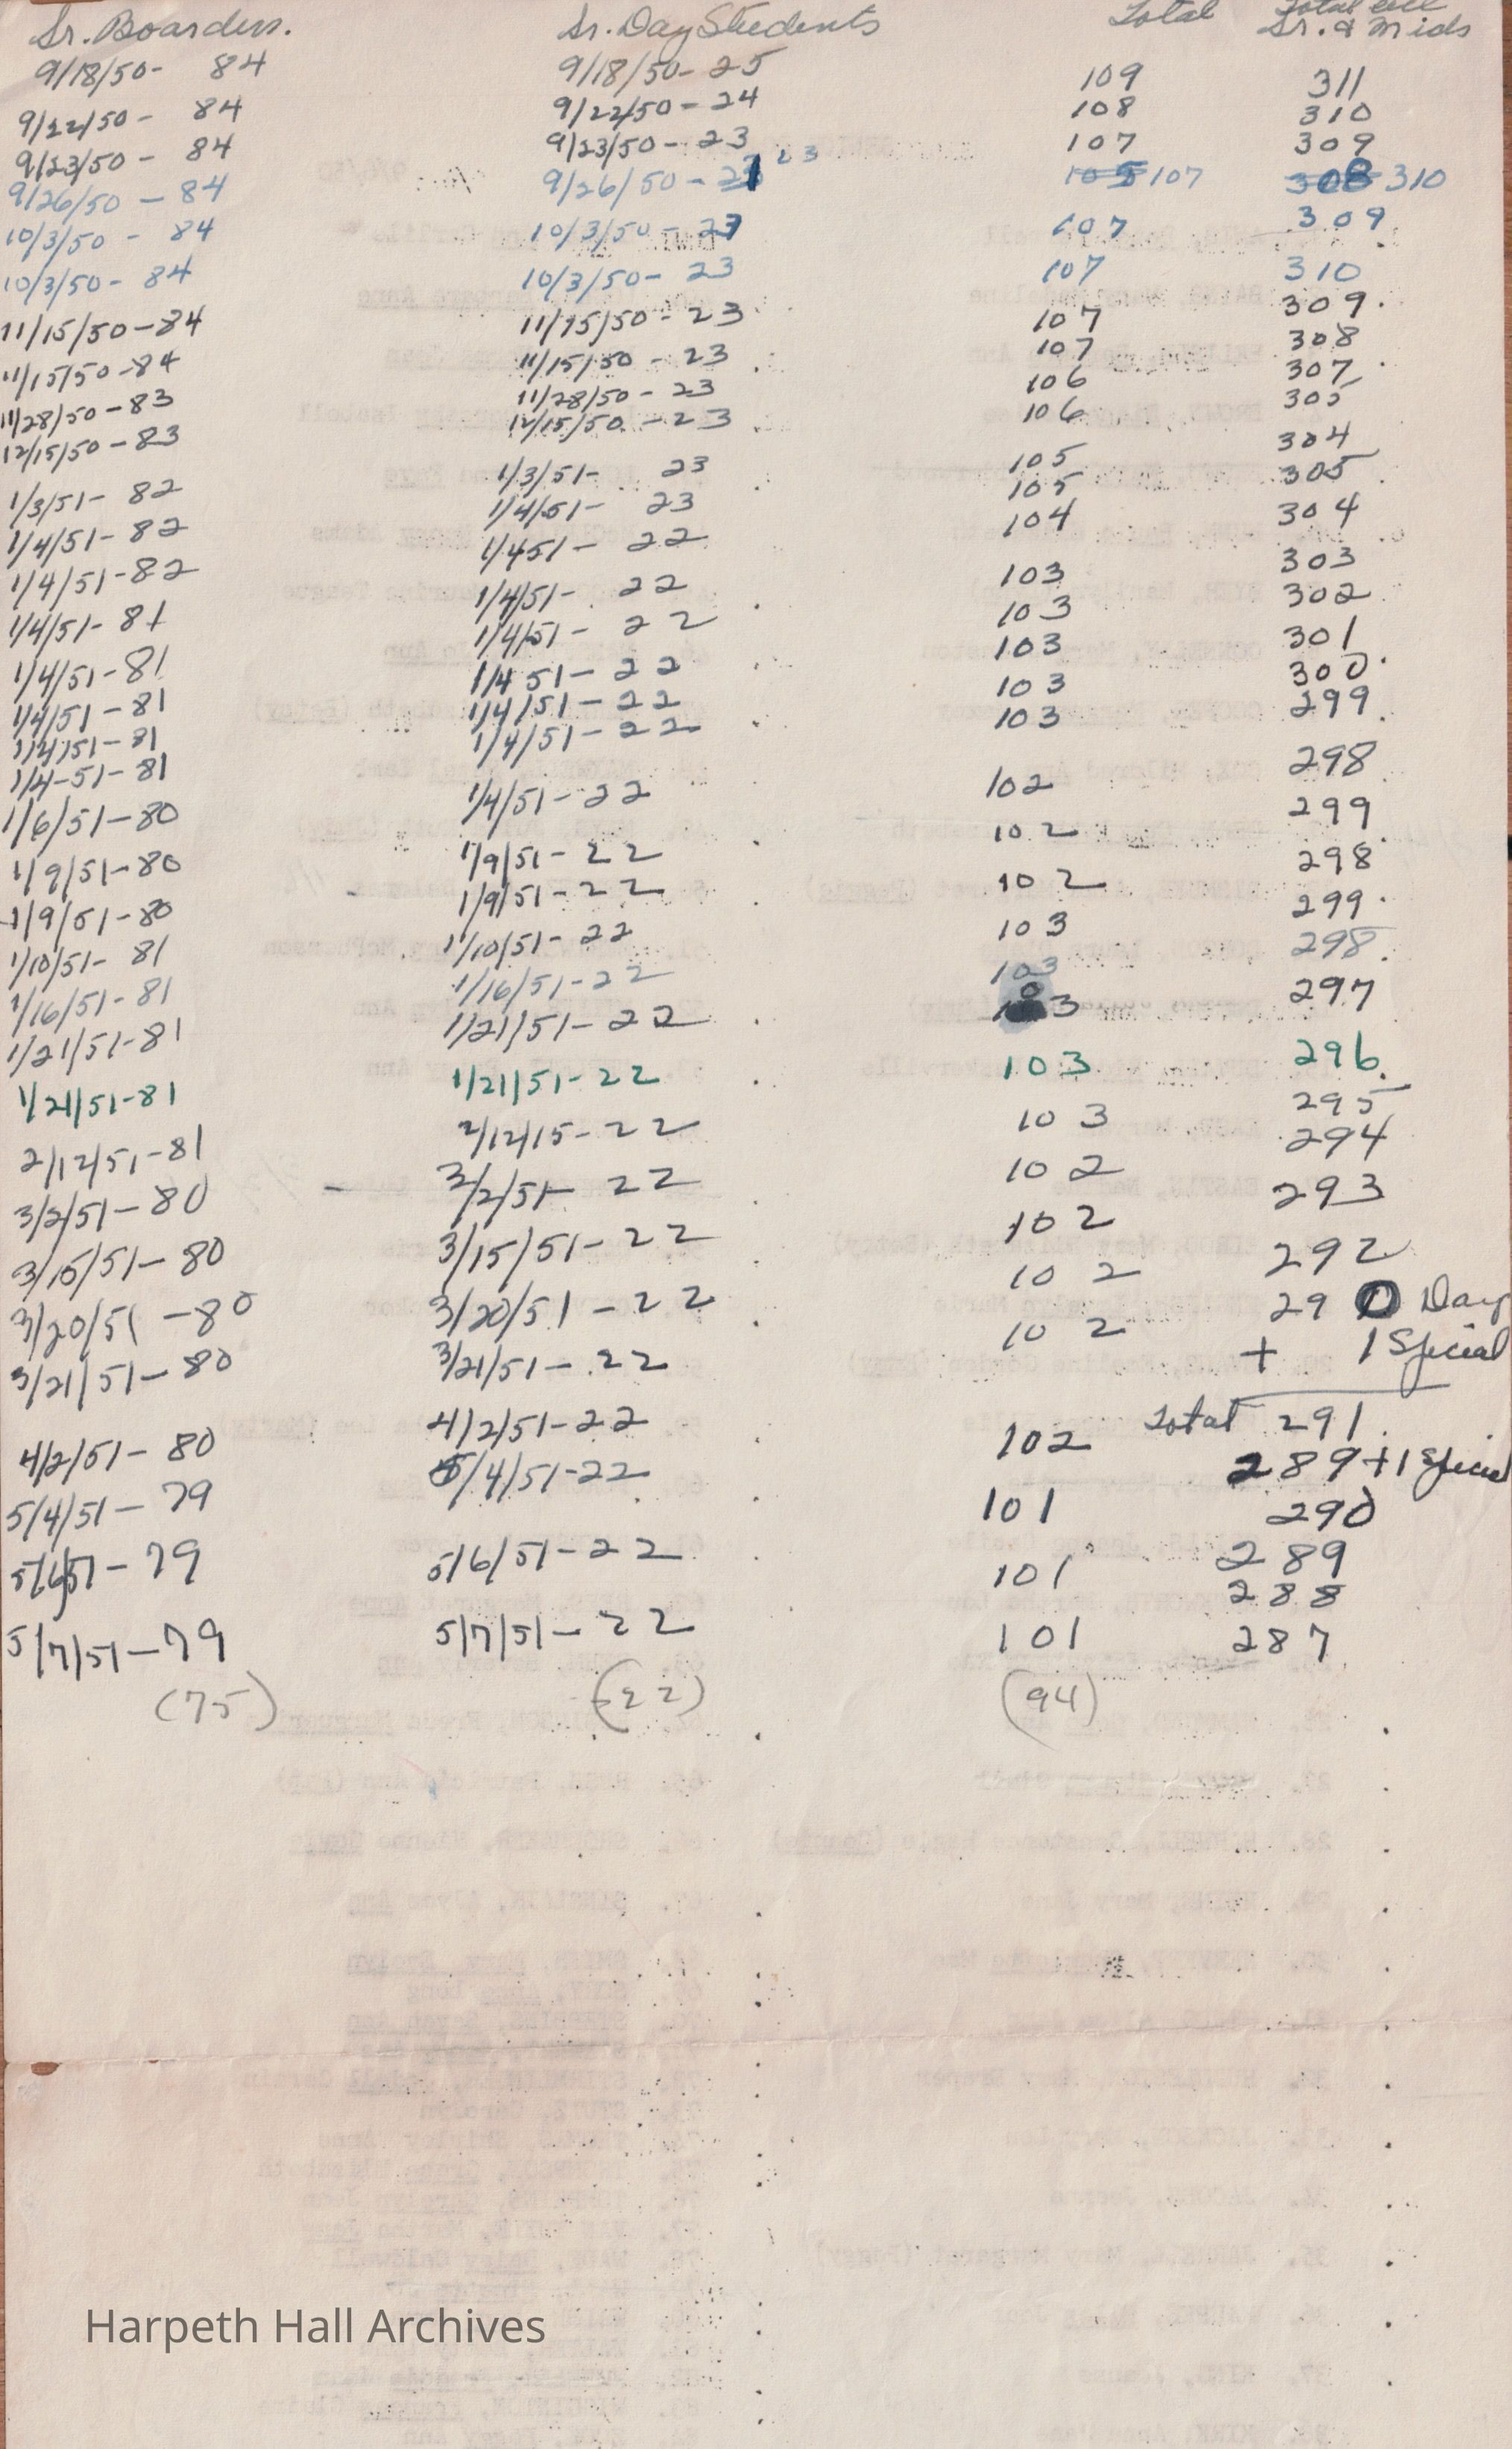 Sr. Boarders. Sr. Day Students Total Total all Sr. & Mids
9/18/50- 84 9/18/50- 25 109 311
9/22/50- 84 9/22/50- 24 108 310
9/23/50- 84 9/23/50- 23 107 309
9/26/50- 84 9/26/50- 23 105 107 308 310
10/3/50- 84 10/3/50- 23 107 309
10/3/50- 84 10/3/50- 23 107 310
11/15/50-84 11/15/50- 23 107 309.
11/15/50-84 11/15/50- 23 107 308
11/28/50-83 11/28/50- 23 106 307
12/15/50-83 12/15/50-23 106 305
1/3/51- 82 1/3/51- 23 105 304
1/4/51- 82 1/4/51- 23 105 305
1/4/51-82 1/451- 22 104 304
1/4/51- 81 1/4/51- 22 103 303
1/4/51-81 1/4/51- 22 103 302
1/4/51-81 1/4 51-22 103 301
1/4/51-81 1/4/51-22 103 300
1/4-51-81 1/4/51-22 103 299
1/6/51-80 1/4/51-22 102 298
1/9/51-80 1/9/51-22 102 299
1/9/51-80 1/9/51-22 102 298
1/10/51- 81 1/10/51-22 103 299
1/16/51-81 1/16/51-22 103 298
1/21/51-81 1/21/51-22 103 297
1/21/51-81 1/21/51-22 103 296
2/12/51-81 2/12/15-22 103 295
3/2/51-80 3/2/51- 22 102 294
3/15/51-80 3/15/51-22 102 293
3/20/51-80 3/20/51-22 102 292
3/21/51-80 3/21/51-22 102 290 Day
+ 1 Special
Total 291
4/2/51- 80 4/2/51-22 102 289+1 Special
5/4/51- 79 5/4/51-22 101 290
5/6/51- 79 5/6/51-22 101 289
288
5/7/51-79 5/7/51-22 101 287
(75) (22) (94)
Harpeth Hall Archives